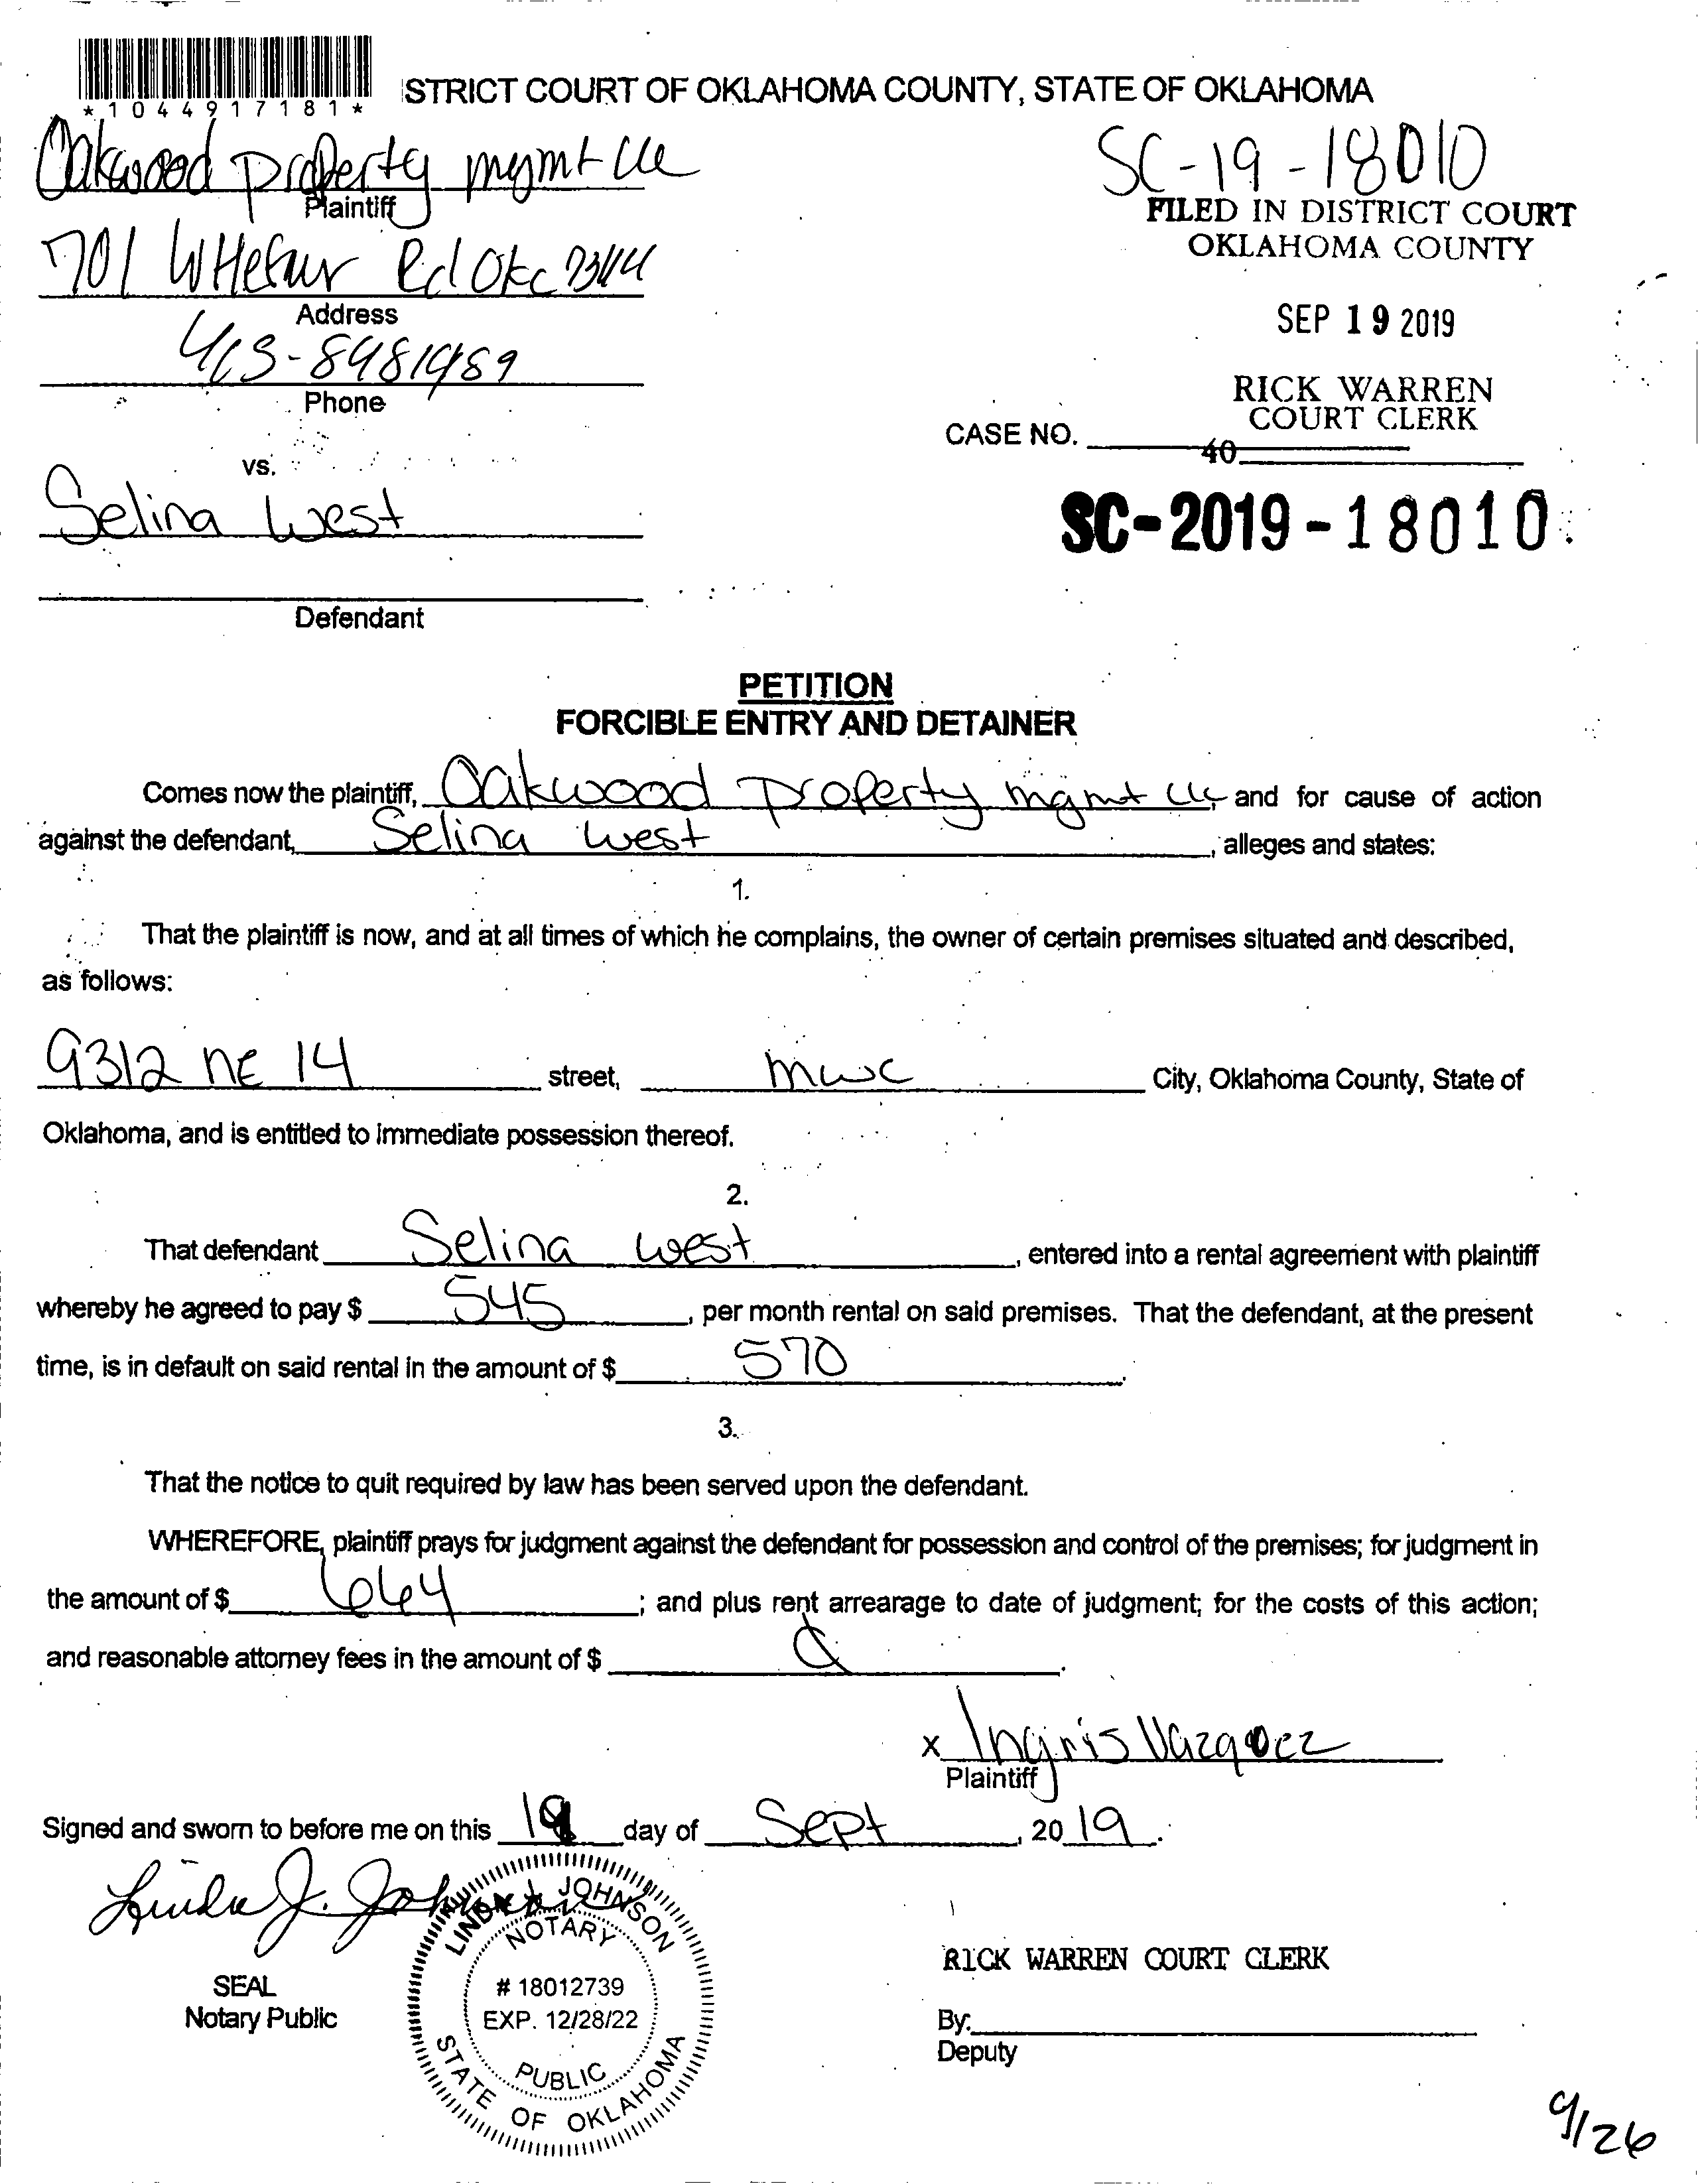 *1044917181*
ISTRICT COURT OF OKLAHOMA COUNTY, STATE OF OKLAHOMA
Oakwood property mgmt llc
Plaintiff
SC-19-18010
FILED IN DISTRICT COURT
OKLAHOMA COUNTY
701 W Hefner Rd Okc 73114
Address
SEP 19 2019
Phone
RICK WARREN
COURT CLERK
CASE NO.
40
vs.
Selina West
SC-2019-18010
Defendant
PETITION
FORCIBLE ENTRY AND DETAINER
Comes now the plaintiff, Oakwood Property mgmt llc, and for cause of action
against the defendant, Selina West, alleges and states:
1.
That the plaintiff is now, and at all times of which he complains, the owner of certain premises situated and described,
as follows:
9312 NE 14 street, mwc City, Oklahoma County, State of
Oklahoma, and is entitled to immediate possession thereof.
2.
That defendant Selina West, entered into a rental agreement with plaintiff
whereby he agreed to pay $ 545, per month rental on said premises. That the defendant, at the present
time, is in default on said rental in the amount of $ 570.
3.
That the notice to quit required by law has been served upon the defendant.
WHEREFORE, plaintiff prays for judgment against the defendant for possession and control of the premises; for judgment in
the amount of $ 664; and plus rent arrearage to date of judgment; for the costs of this action;
and reasonable attorney fees in the amount of $
x Ingris Vazquez
Plaintiff
Signed and sworn to before me on this 19 day of Sept, 2019.
Linda J. Johnson
LINDA J. JOHNSON
NOTARY
# 18012739
EXP. 12/28/22
PUBLIC
STATE OF OKLAHOMA
SEAL
Notary Public
RICK WARREN COURT CLERK
By:
Deputy
9/26